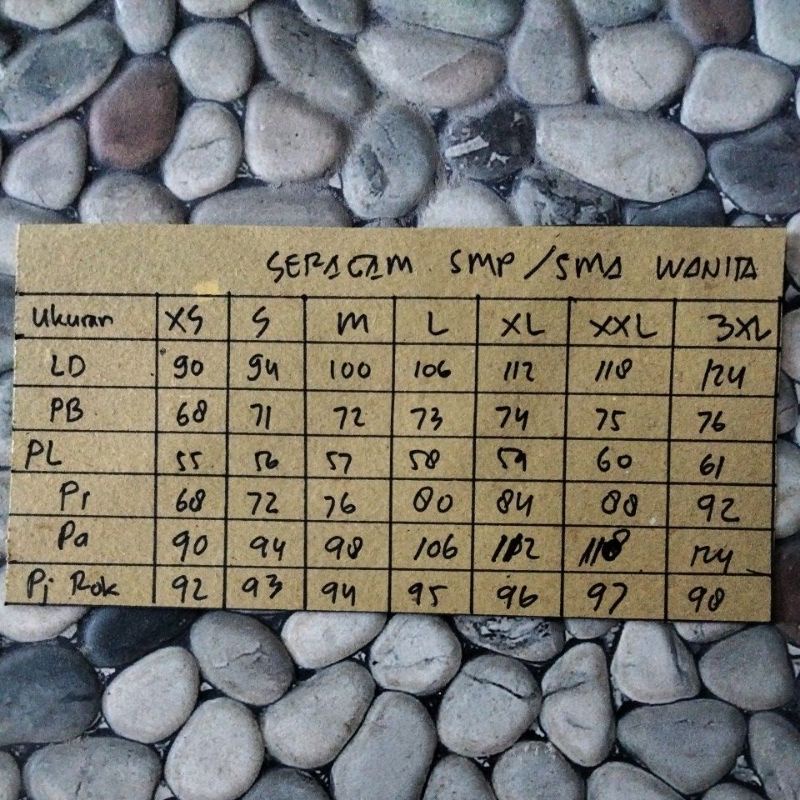 SERAGAM SMP/SMA WANITA
Ukuran XS S M L XL XXL 3XL
LD 90 94 100 106 112 118 124
PB 68 71 72 73 74 75 76
PL 55 56 57 58 59 60 61
Pr 68 72 76 80 84 88 92
Pa 90 94 98 106 112 118 124
Pj Rok 92 93 94 95 96 97 98